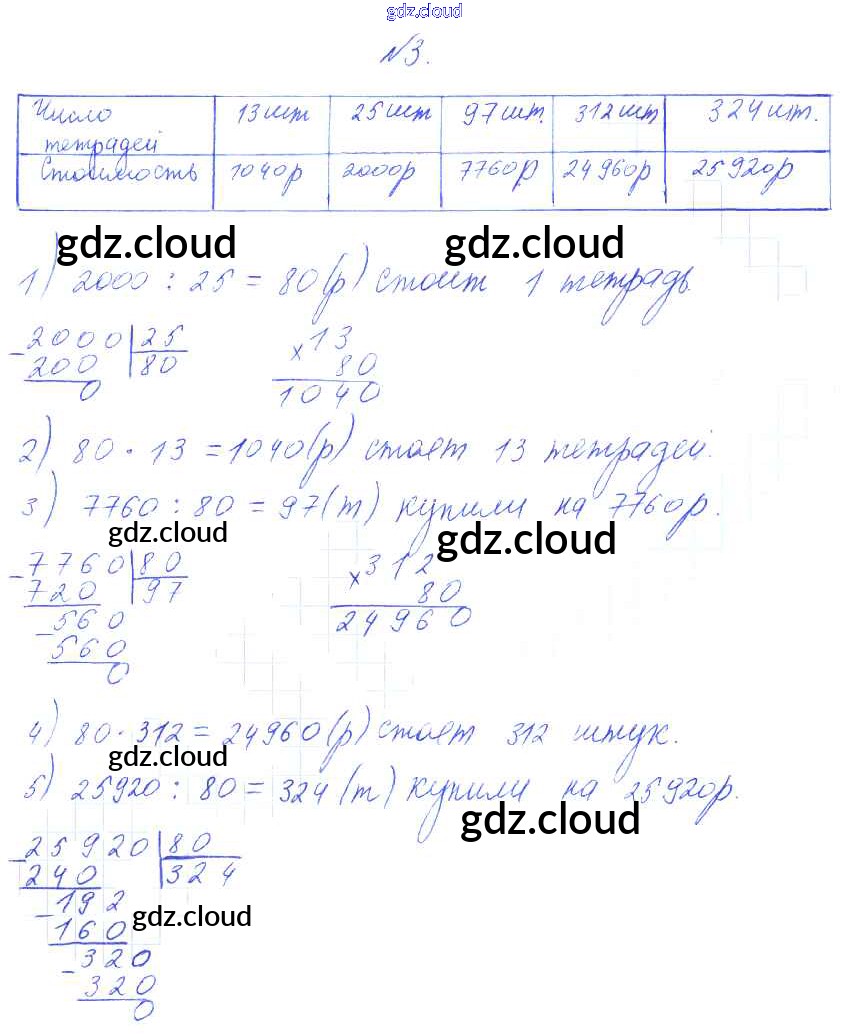 gdz.cloud
№3.
Число тетрадей 13шт 25шт 97шт. 312шт 324шт.
Стоимость 1040р 2000р 7760р 24960р 25920р
gdz.cloud gdz.cloud
1) 2000 : 25 = 80(р) стоит 1 тетрадь.
- 2000 25 × 13
200 80 80
0 1040
2) 80 · 13 = 1040(р) стоят 13 тетрадей.
3) 7760 : 80 = 97(т) купили на 7760р.
gdz.cloud gdz.cloud
- 7760 80 × 312
720 97 80
- 560 24960
560
0
4) 80 · 312 = 24960(р) стоят 312 штук.
gdz.cloud
5) 25920 : 80 = 324(т) купили на 25920р.
gdz.cloud
- 25920 80
240 324
- 192
gdz.cloud
160
- 320
320
0